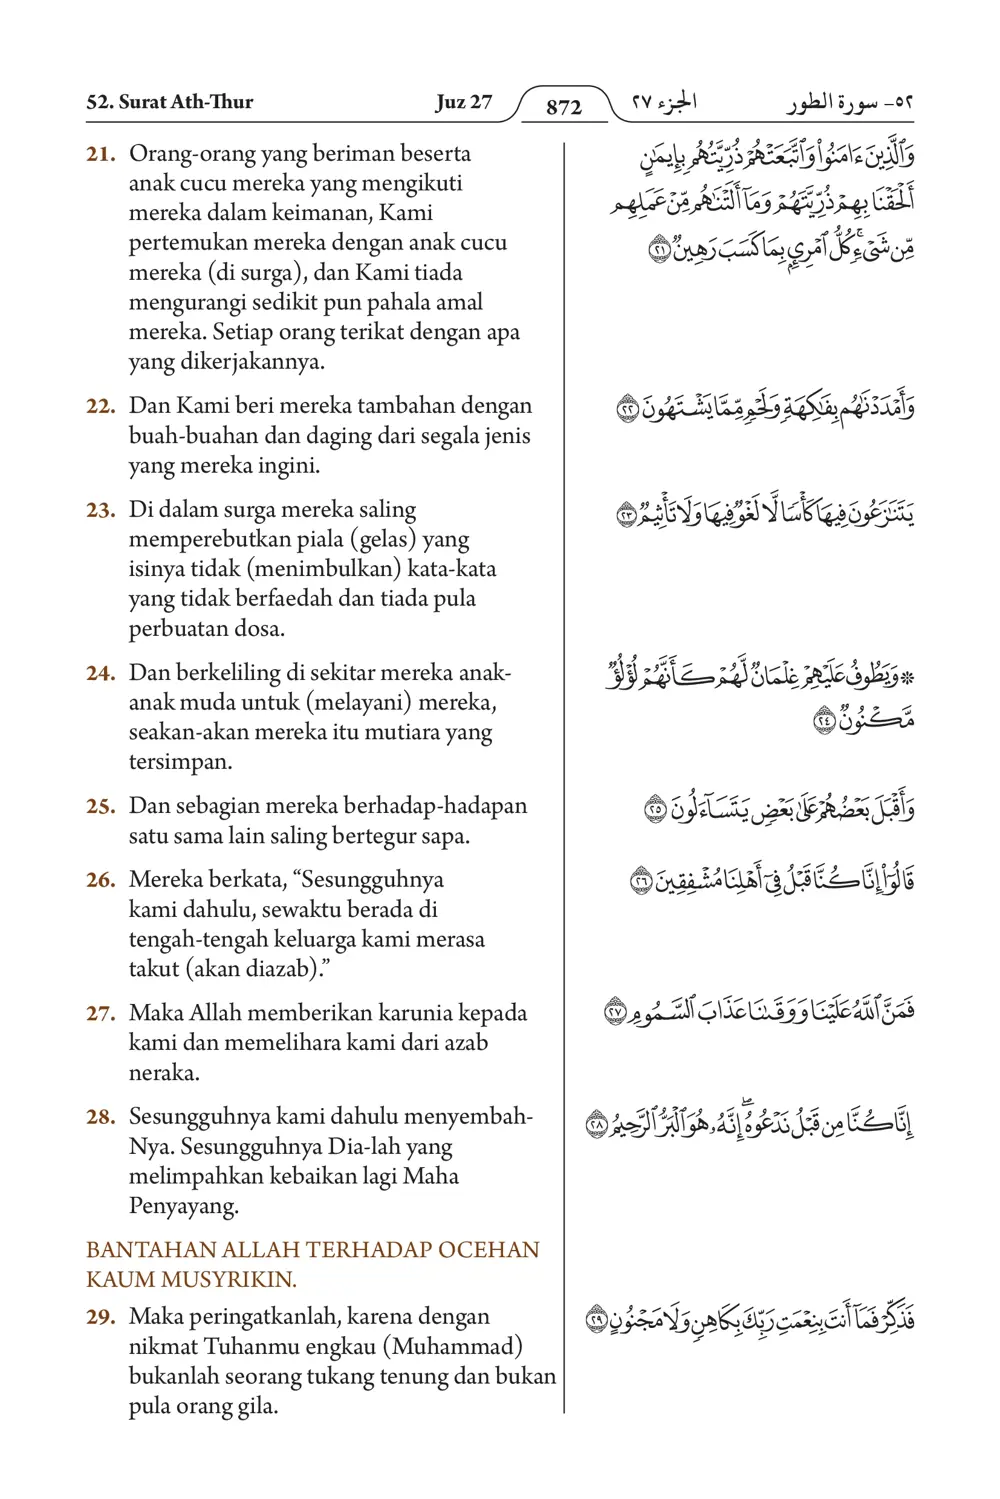 52. Surat Ath-Thur Juz 27 872 الجزء ٢٧ ٥٢- سورة الطور
21. Orang-orang yang beriman beserta
anak cucu mereka yang mengikuti
mereka dalam keimanan, Kami
pertemukan mereka dengan anak cucu
mereka (di surga), dan Kami tiada
mengurangi sedikit pun pahala amal
mereka. Setiap orang terikat dengan apa
yang dikerjakannya.
وَٱلَّذِينَ ءَامَنُوا۟ وَٱتَّبَعَتْهُمْ ذُرِّيَّتُهُم بِإِيمَـٰنٍ
أَلْحَقْنَا بِهِمْ ذُرِّيَّتَهُمْ وَمَآ أَلَتْنَـٰهُم مِّنْ عَمَلِهِم
مِّن شَىْءٍ ۚ كُلُّ ٱمْرِئٍۭ بِمَا كَسَبَ رَهِينٌ ٢١
22. Dan Kami beri mereka tambahan dengan
buah-buahan dan daging dari segala jenis
yang mereka ingini.
وَأَمْدَدْنَـٰهُم بِفَـٰكِهَةٍ وَلَحْمٍ مِّمَّا يَشْتَهُونَ ٢٢
23. Di dalam surga mereka saling
memperebutkan piala (gelas) yang
isinya tidak (menimbulkan) kata-kata
yang tidak berfaedah dan tiada pula
perbuatan dosa.
يَتَنَـٰزَعُونَ فِيهَا كَأْسًا لَّا لَغْوٌ فِيهَا وَلَا تَأْثِيمٌ ٢٣
24. Dan berkeliling di sekitar mereka anak-
anak muda untuk (melayani) mereka,
seakan-akan mereka itu mutiara yang
tersimpan.
۞ وَيَطُوفُ عَلَيْهِمْ غِلْمَانٌ لَّهُمْ كَأَنَّهُمْ لُؤْلُؤٌ
مَّكْنُونٌ ٢٤
25. Dan sebagian mereka berhadap-hadapan
satu sama lain saling bertegur sapa.
وَأَقْبَلَ بَعْضُهُمْ عَلَىٰ بَعْضٍ يَتَسَآءَلُونَ ٢٥
26. Mereka berkata, “Sesungguhnya
kami dahulu, sewaktu berada di
tengah-tengah keluarga kami merasa
takut (akan diazab).”
قَالُوٓا۟ إِنَّا كُنَّا قَبْلُ فِىٓ أَهْلِنَا مُشْفِقِينَ ٢٦
27. Maka Allah memberikan karunia kepada
kami dan memelihara kami dari azab
neraka.
فَمَنَّ ٱللَّهُ عَلَيْنَا وَوَقَىٰنَا عَذَابَ ٱلسَّمُومِ ٢٧
28. Sesungguhnya kami dahulu menyembah-
Nya. Sesungguhnya Dia-lah yang
melimpahkan kebaikan lagi Maha
Penyayang.
إِنَّا كُنَّا مِن قَبْلُ نَدْعُوهُ ۖ إِنَّهُۥ هُوَ ٱلْبَرُّ ٱلرَّحِيمُ ٢٨
BANTAHAN ALLAH TERHADAP OCEHAN
KAUM MUSYRIKIN.
29. Maka peringatkanlah, karena dengan
nikmat Tuhanmu engkau (Muhammad)
bukanlah seorang tukang tenung dan bukan
pula orang gila.
فَذَكِّرْ فَمَآ أَنتَ بِنِعْمَتِ رَبِّكَ بِكَاهِنٍ وَلَا مَجْنُونٍ ٢٩